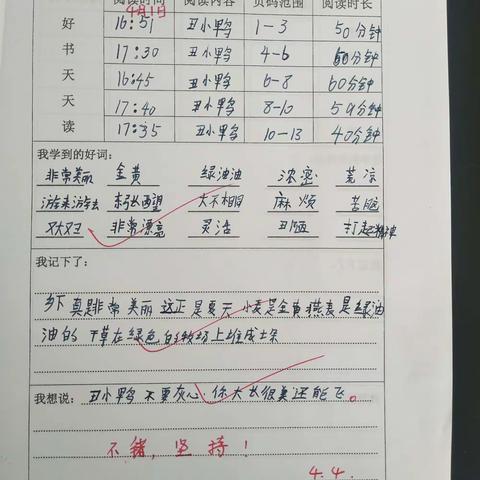 阅读时间 阅读内容 页码范围 阅读时长
4月1日
好 16:51 丑小鸭 1-3 50分钟
书 17:30 丑小鸭 4-6 分钟
天 16:45 丑小鸭 6-8 60分钟
天 17:40 丑小鸭 8-10 59分钟
读 17:35 丑小鸭 10-13 40分钟
我学到的好词:
非常美丽 金黄 绿油油 浓密 荒凉
游来游去 东张西望 大不相同 麻烦 苦恼
又大又丑 非常漂亮 灵活 丑陋 打起精神
我记下了:
乡下真是非常美丽 这正是夏天 小麦是金黄燕麦是绿油
油的 干草在绿色的牧场上堆成垛
我想说: 丑小鸭不要灰心 你大长很美还能飞。
不错,坚持!
4.4.